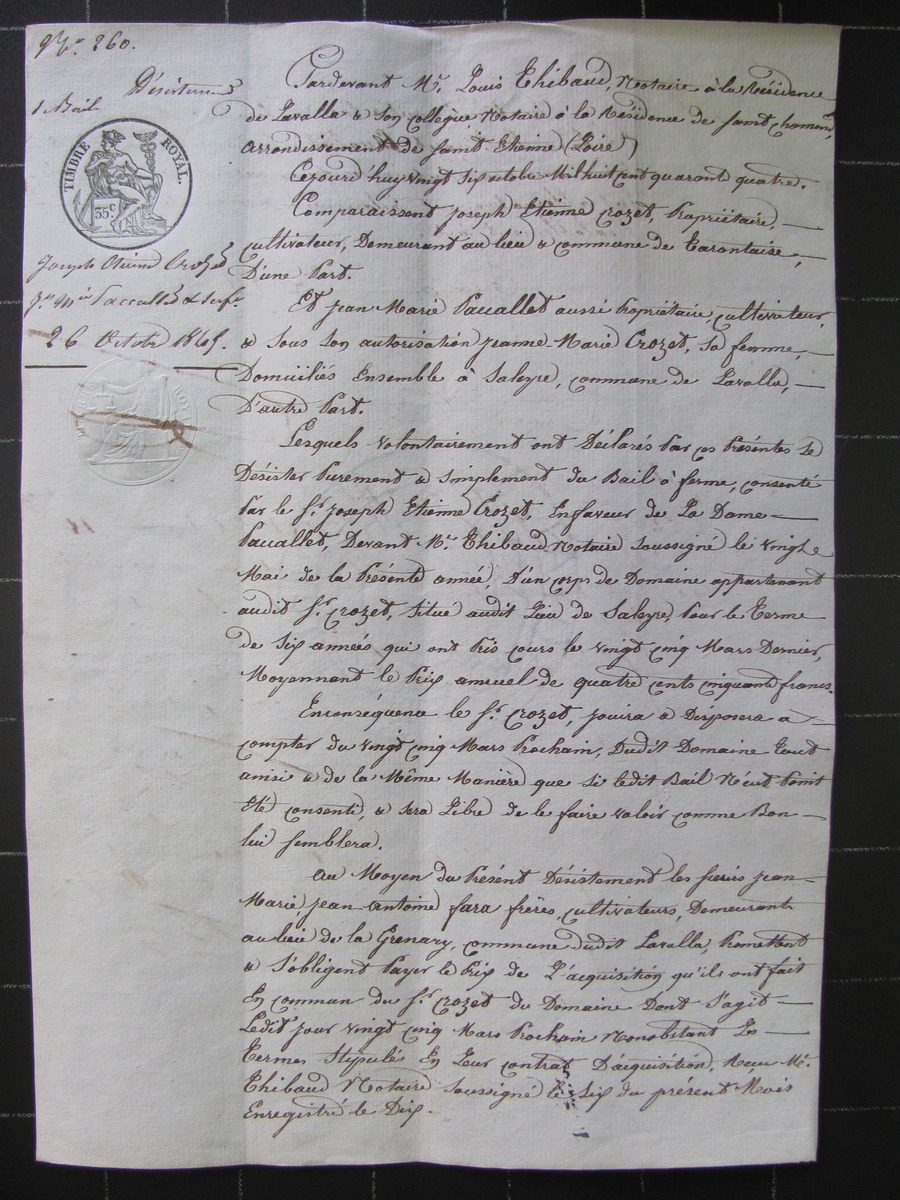 N° 260.
Désistement
1. Bail
TIMBRE ROYAL.
35 c
Joseph Etienne Crozet
Jn Mie Paccallet & sa fe
26 Octobre 1845.
Pardevant Me. Louis Thibaud, Notaire à la Résidence
de Lavalla & son collègue Notaire à la Résidence de saint chamond,
arrondissement de saint Etienne (Loire)
Cejourd'huy vingt six octobre Mil huit cent quarant quatre.
Comparaissent Joseph Etienne Crozet, Propriétaire,
cultivateur, Demeurant au lieu & commune de Tarantaise,
D'une Part.
Et Jean Marie Pacallet aussi Propriétaire, cultivateur,
& sous son autorisation Jeanne Marie Crozet, sa femme,
Domiciliés Ensemble à Saleyre, commune de Lavalla,
D'autre Part.
Lesquels volontairement ont Déclarés Par ces Présentes se
Désister Purement & simplement du Bail à ferme, consenté
Par le Sr. Joseph Etienne Crozet, En faveur de La Dame
Pacallet, Devant Me. Thibaud Notaire soussigné le vingt
Mai de la Présente année, d'un corps de Domaine appartenant
audit Sr. Crozet, situé audit Lieu de Saleyre, Pour le Terme
de six années qui ont Pris cours le vingt cinq Mars Dernier,
Moyennant le Prix annuel de quatre cents cinquante francs.
En conséquence le Sr. Crozet, jouira & Disposera à
compter du vingt cinq Mars Prochain, Dudit Domaine Tout
ainsi & de la Même Manière que si ledit Bail N'eut Point
Eté consenti, & sera Libre de le faire valoir comme Bon
lui semblera.
Au Moyen du Présent Désistement les sieurs Jean
Marie, Jean Antoine fara frères, cultivateurs, Demeurant
au lieu de la Grenary, commune dudit Lavalla, Promettent
& s'obligent Payer le Prix de L'acquisition qu'ils ont fait
En commun du Sr. Crozet du Domaine Dont s'agit
Ledit jour vingt cinq Mars Prochain Nonobstant Les
Termes stipulés En Leur contrat D'acquisition, Reçu Me.
Thibaud Notaire soussigné le six du présent Mois
Enregistré le Dix.